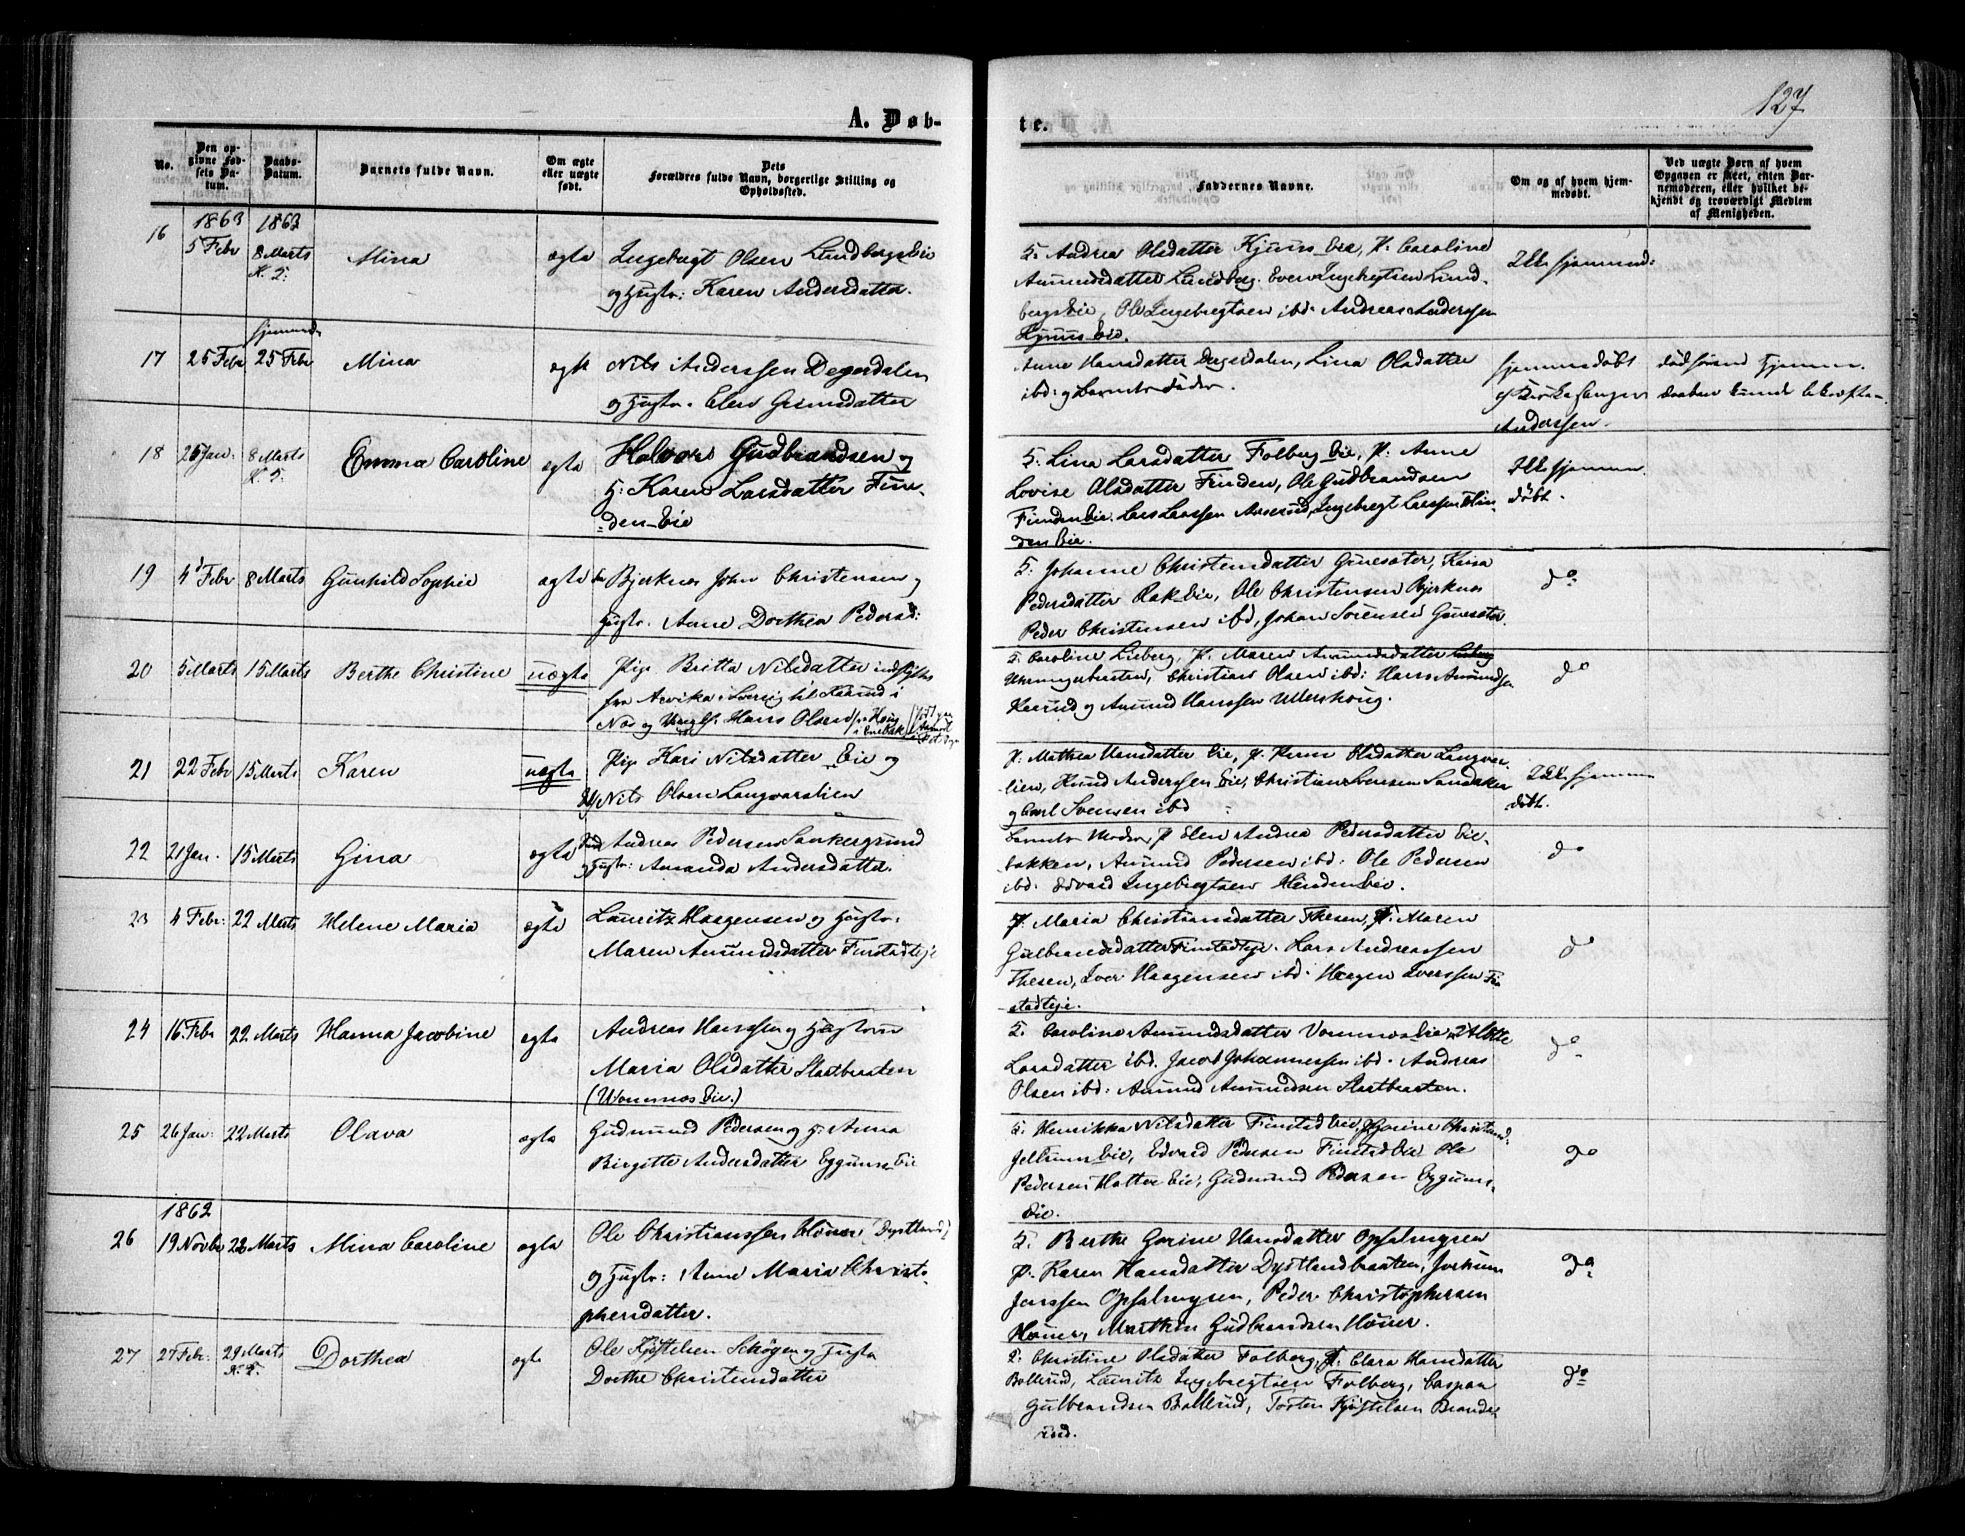 127
A. Døb-
te.
No.
Den op-
givne Fød-
sels Da-
tum.
Daabs-
Datum.
Barnets fulde Navn.
Om ægte
eller uægte
født.
Dets
Forældres fulde Navn, borgerlige Stilling og
Opholdssted.
Faddernes Navne.
Om og af hvem hjem-
medøbt.
Ved uægte Børn af hvem
Opgaven er skeet, enten Bar-
nemoderen, eller hvilket be-
kjendt og troværdigt Medlem
af Menigheden.
1863 1863
16 5 Febr 8 Marts Mina ægte Ingebregt Olsen Lundbergs Eie
og Hustr: Karen Andersdatter.
Andrea Olsdatter Eie, P. Caroline
Amundsdatter Lundberg. Even Ingebregtsen Lund-
bergs Eie, Ole Ingebregtsen ibd. Andreas Anderssen
Eie.
Ikke hjemmed:
17 25 Febr 25 Febr Mina ægte Nils Anderssen Degerdalen
og Hustr.
Anne Hansdatter Degerdalen, Lina Olsdatter
ibd: og Barnets Fader.
hjemmedøbt
af
Anderssen.
18 26 Jan: 8 Marts Emma Caroline ægte Halvor Gudbrandsen og
H: Karen Larsdatter Fin-
den Eie
Lina Larsdatter Folberg Eie, P. Anne
Lovise Olsdatter Finden, Ole Gudbrandsen
Finden Eie. Lars Larssen Ingebregt Larssen Fin-
den Eie.
Ikke hjemme-
døbt.
19 4 Febr 8 Marts Gunhild Sophie ægte Bjerknes John Christensen og
Hustr. Anne Dorthea Pedersd:
Johanne Christensdatter Kaisa
Pedersdatter Rak Eie, Ole Christensen Bjerknes
Peder Christensen ibd, Johan Sørensen
do
20 5 Marts 15 Marts Berthe Christine uægte Pige Britta Nilsdatter
fra Arvika i Sverig til i
Næs og Hans Olsen
Caroline P. Maren Amundsdatter
Christian Olsen ibd: Hans Amundsen
og Amund Hanssen Ullershoug.
do
21 22 Febr 15 Marts Karen uægte Pige Kari Nilsdatter Eie og
Nils Olsen Langvarslien
P. Mathea Hansdatter Eie, P. Olsdatter Langvars-
lien, Knud Anderssen Eie, Christian Svensen Sandaker
og Carl Svensen ibd
Ikke hjemme
døbt.
22 21 Jan. 15 Marts Gina ægte Andreas Pedersen
og Hustr: Amanda Andersdatter.
Moder, P Elen Andrea Pedersdatter Eie-
bakken, Amund Pedersen ibd: Ole Pedersen
ibd: Edvard Ingebregtsen
do
23 4 Febr: 22 Marts Helene Maria ægte Lauritz Haagensen og Hustr:
Maren Amundsdatter Finstadeje
P. Maria Christiansdatter Thesen, P. Maren
Gulbrandsdatter Finstadeje. Lars Andreassen
Thesen, Iver Haagensen ibd: Haagen Iverssen Fin-
stadeje.
do
24 16 Febr 22 Marts Hanna Jacobine ægte Andreas Hanssen og Hustru
Maria Olsdatter Startbraaten
(Vommnes Eie.)
Caroline Amundsdatter Vommnes Eie,
Larsdatter ibd. Jacob Johannessen ibd. Andreas
Olsen ibd: Amund Amundsen Startbraaten.
do
25 26 Jan: 22 Marts Olava ægte Gudmund Pedersen og H: Anna
Birgitte Andersdatter Eie
Henrikka Nilsdatter Finstad Eie,
Eie, Edvard Pedersen Finstad Eie Ole
Pedersen Eie, Gudmund Pedersen
Eie.
do
1862
26 19 Novbr 22 Marts Mina Caroline ægte Ole Christianssen Høner (Dystland)
og Hustr: Anne Maria Christo-
phersdatter.
Berthe Gurine Hansdatter Opsalmyren
P. Karen Hansdatter Dystlandbraaten,
Jenssen Opsalmyren, Peder Christophersen
Høner, Gudbrandsen Høner.
do
27 27 Febr. 29 Marts Dorthea ægte Ole Kjøstelsen og Hustr
Dorthe Christensdatter
Christine Olsdatter Folberg, P. Clara Hansdatter
Bollerud, Lauritz Ingebregtsen Folberg, Caspar
Gulbrandsen Bollerud, Torsten Kjøstelsen Brande
rud.
do